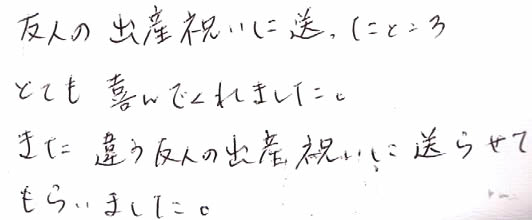 友人の出産祝いに送ったところ
とても喜んでくれました。
また違う友人の出産祝いに送らせて
もらいました。